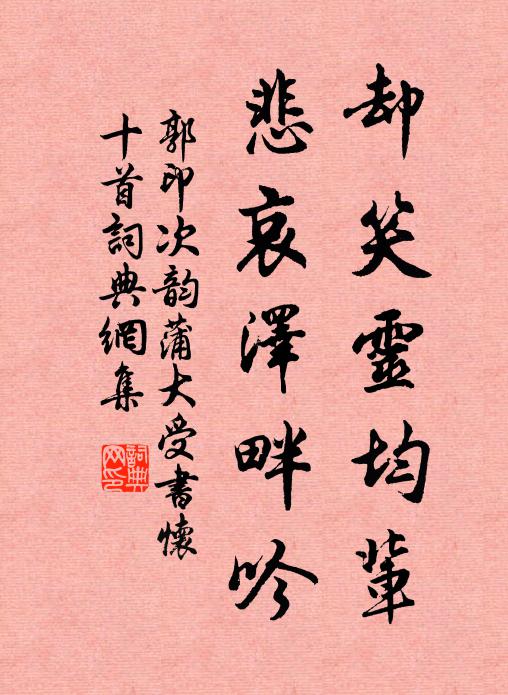 却笑靈均輩
悲哀澤畔吟
郭印次韵蒲大受書懷
十首詞典網集
詞典
网印